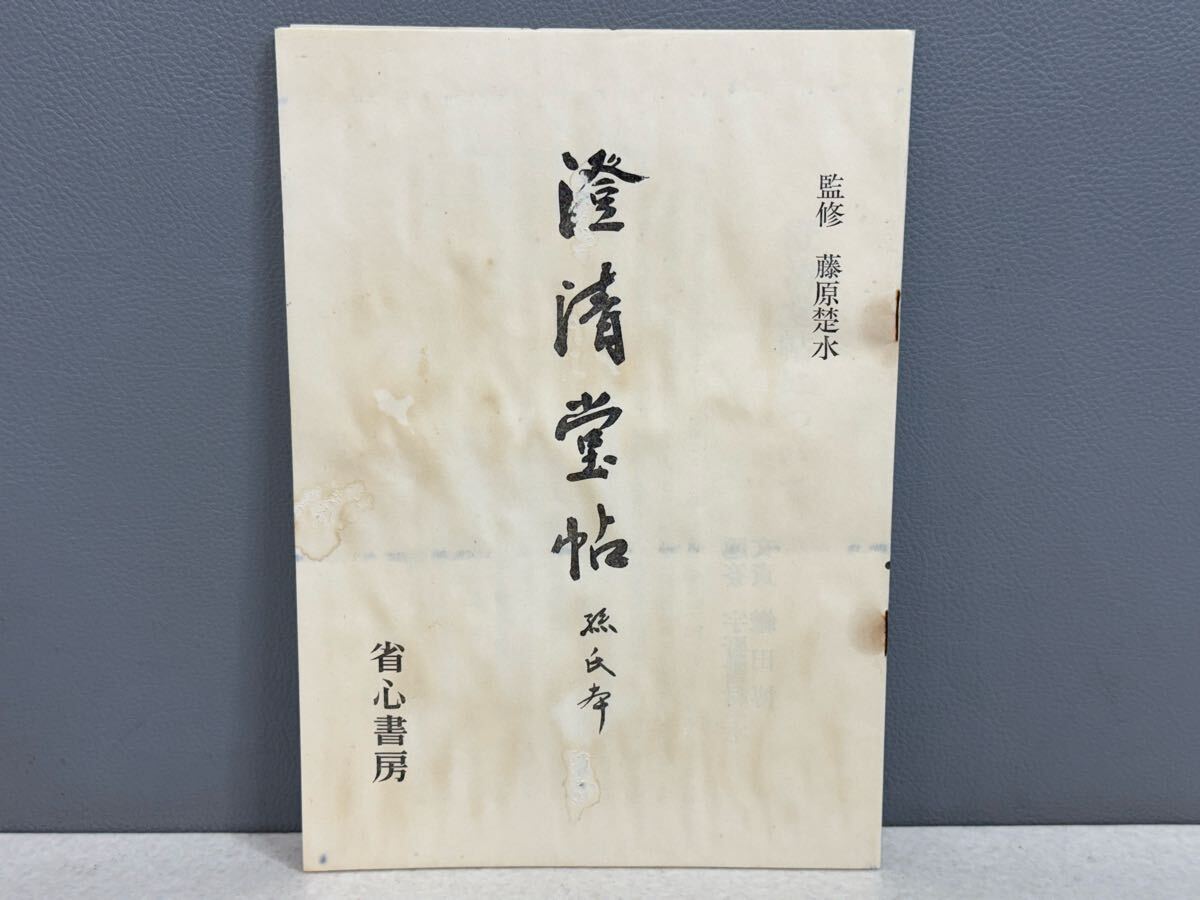 監修 藤原楚水
澄清堂帖
孫氏本
省心書房